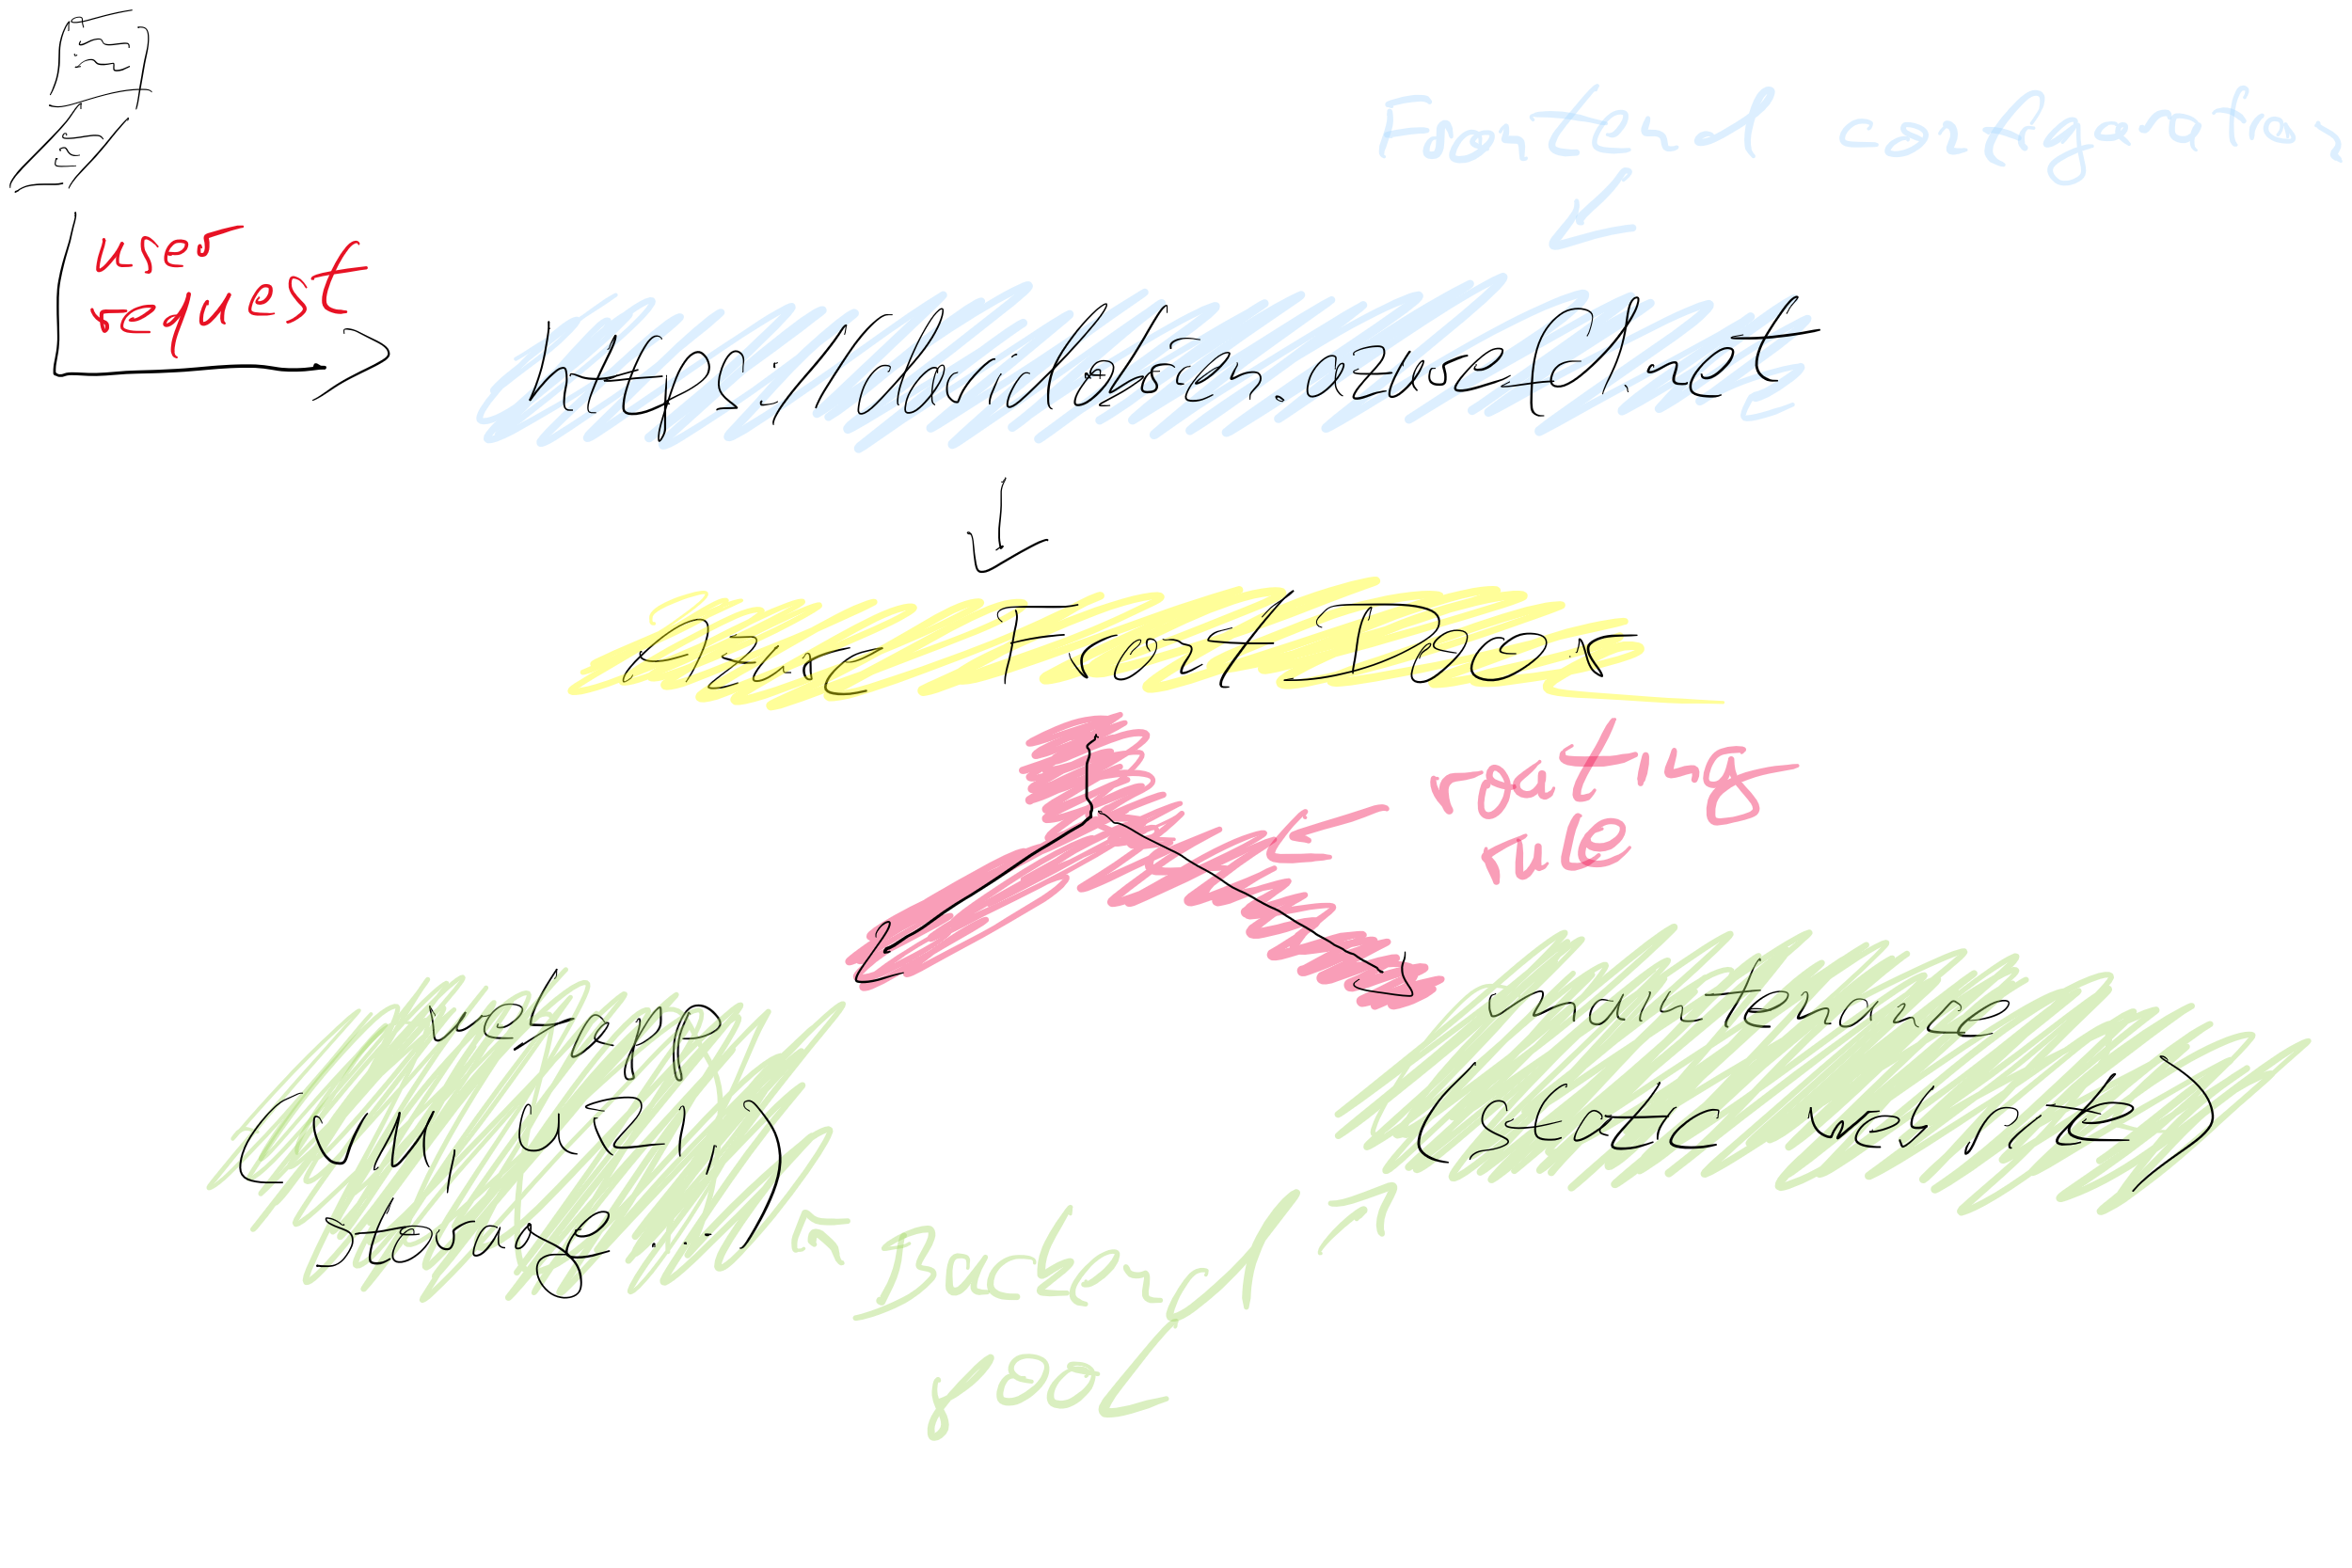 Frontend configuration
user
request
https://davidobrien.azurefd.net
Azure Front Door
routing
rule
webapp
(VM, )
storage ...
maintenance
(static web site)
Backend
pool